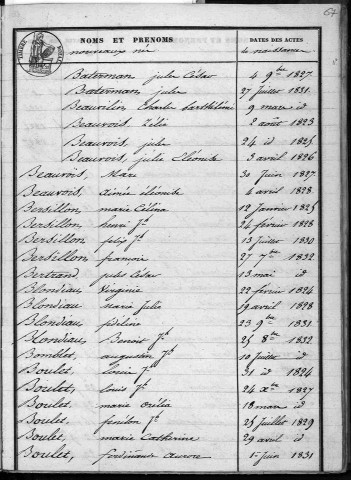 67
NOMS ET PRÉNOMS
DATES DES ACTES
nouveaux nés
de naissance
Baterman, jules César 4 9bre 1827
Baterman, julie 27 juillet 1831
Beauvilin Charles Barthélémi 9 mars id
Beauvois, Zélie 2 août 1823
Beauvois, julie 24 id 1825
Beauvois, julie Eléonide 3 avril 1826
Beauvois, Marc 30 juin 1827
Beauvois, aimée éléonide 4 avril 1828
Bersillon, marie Célina 12 janvier 1825
Bersillon, henri Jh 24 février 1828
Bersillon, felix Jh 13 juillet 1830
Bersillon, françois 27 7bre 1832
Bertrand, jules César 13 mai id
Blondiau, Virginie 22 février 1824
Blondiau, Marie Julie 19 avril 1828
Blondiau, fidéline 23 9bre 1831
Blondiau, Benoit Jh 25 8bre 1832
Bomblet, augustin Jh 10 juillet id
Boulet, Jh 31 id 1824
Boulet, louis Jh 24 Xbre 1827
Boulet, marie orélia 18 mars id
Boulet, fénélon Jh 25 juillet 1829
Boulet, marie Catherine 29 avril id
Boulet, ferdinande aurore 1er juin 1831